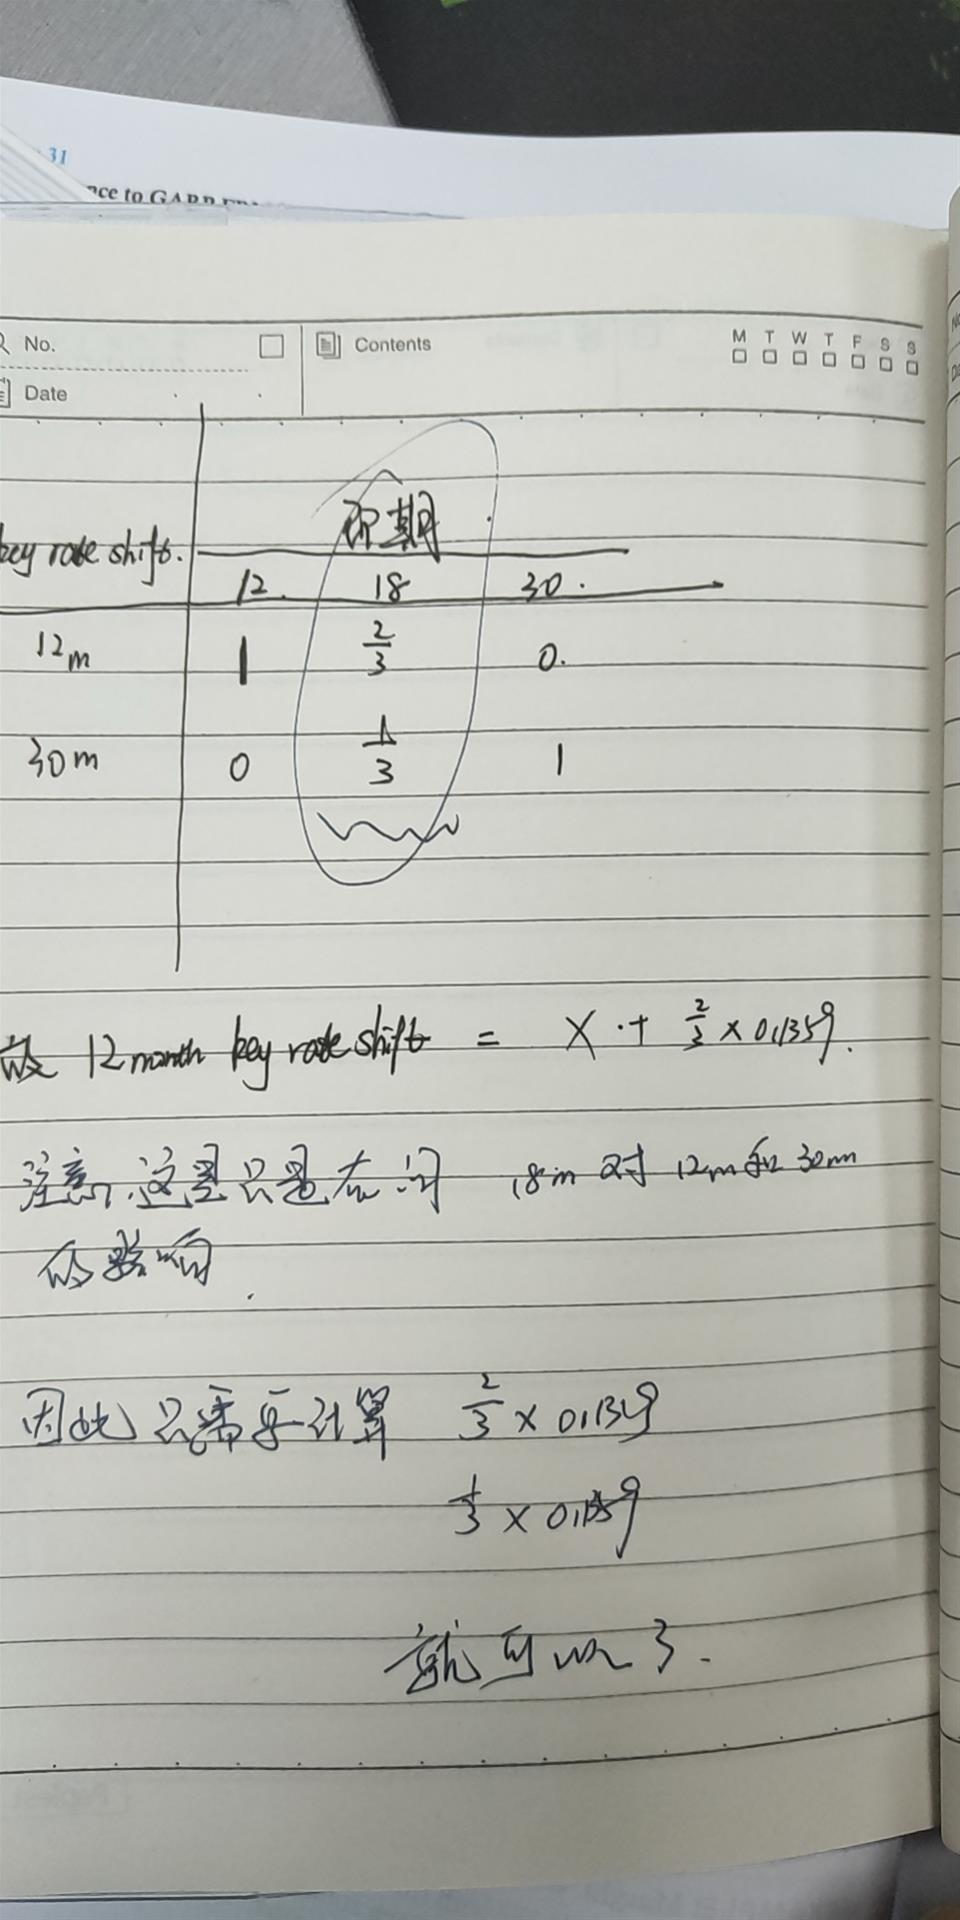 31
nce to GARP
No.
Contents
M T W T F S S
Date
即期
key rate shift.
12. 18 30.
12m 1 2/3 0.
30m 0 1/3 1
故 12 month key rate shift = X + 2/3 × 0.1359.
注意,这里只是在问 18m 对 12m 和 30m
的影响.
因此只需要计算 2/3 × 0.1359
1/3 × 0.1359
就可以了.